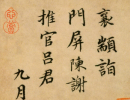 裹䫉詣
門屏陳謝
推官呂君
九月